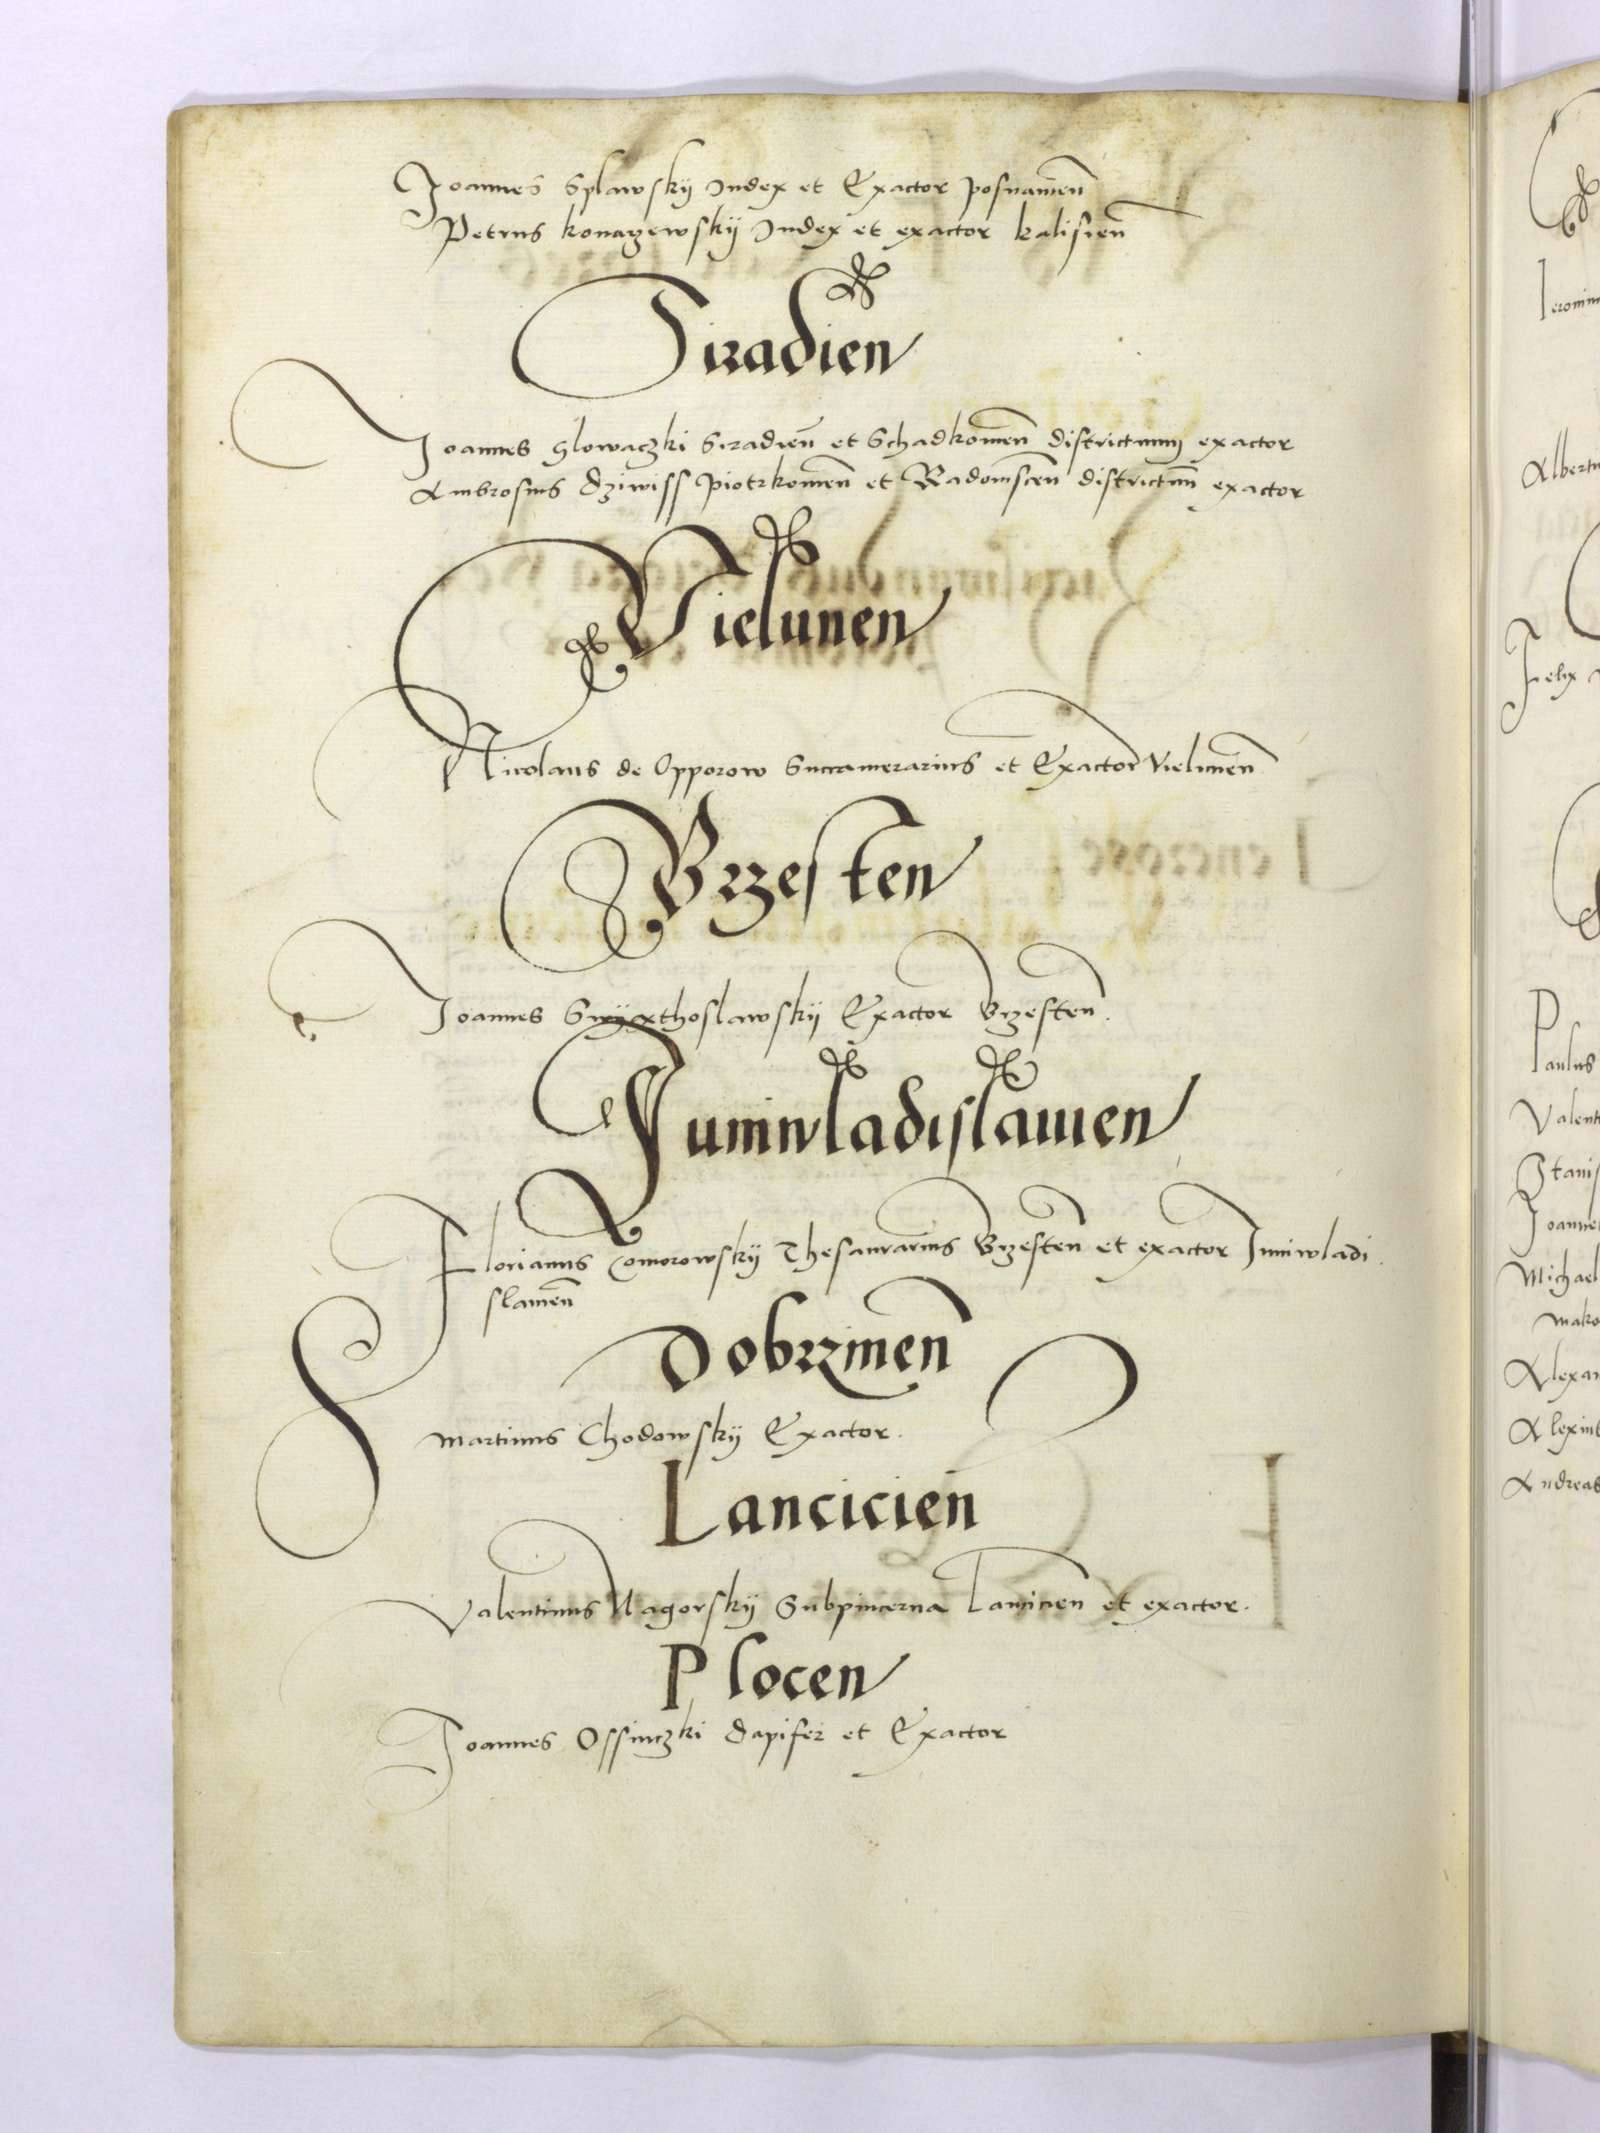 Joannes Splawskÿ Iudex et Exactor posnanien̄
Petrus konarzewskÿ Iudex et exactor kalisien̄
Siradien
Joannes Slowaczki Siradien̄ et Schadkowien̄ districtuum exactor
Ambrosius dziwiss piotrkowien̄ et Radomscen̄ districtuū exactor
Vielunen
Nicolaus de Opporow Succamerarius et Exactor Vielunen̄
Brzesten
Joannes Swÿathoslawskÿ Exactor Brzesten̄.
Juniwladislauien
Florianus Comorowskÿ Thesaurarius Brzesten̄ et exactor Juniwladi
slauien̄
Dobrzinen̄
Martinus Chodowskÿ Exactor.
Lancicien̄
Valentinus Nagorskÿ Subpincerna Lancicien̄ et exactor.
Plocen
Joannes Ossinczki dapifer et Exactor
Ieronim
Albertu
Felix
Paulus
Valent
Stanis
Joanne
Michael
mako
Alexan
Alexius
Andreas